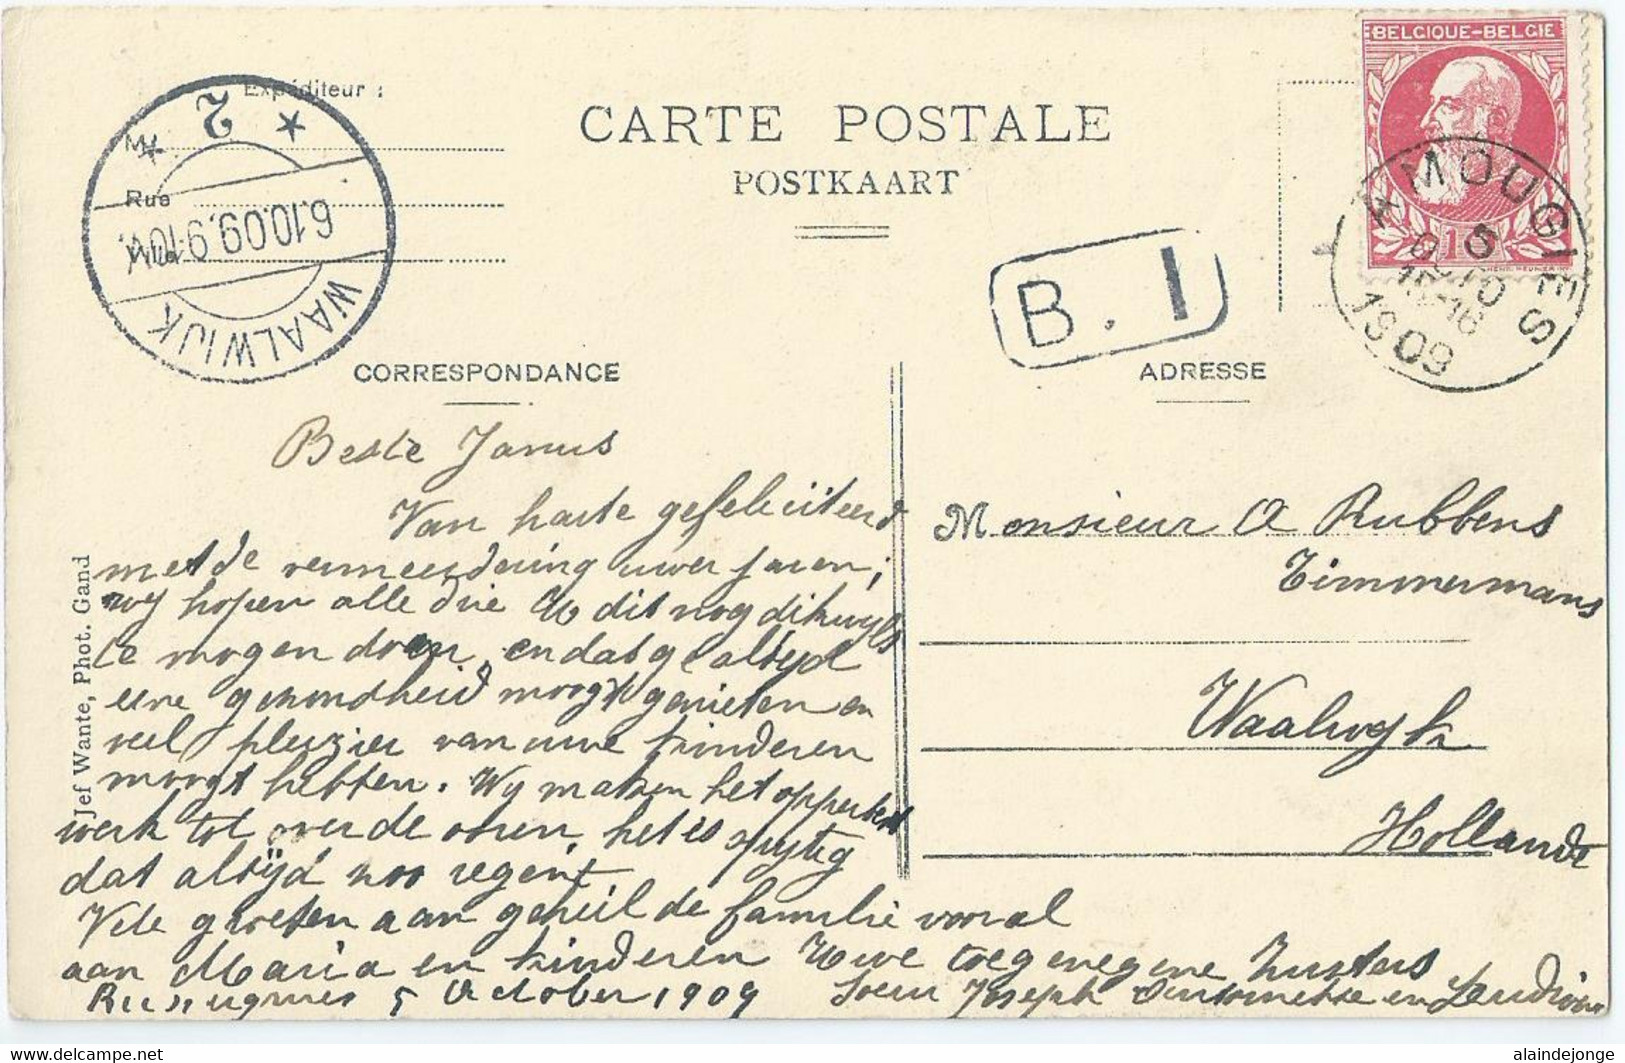 Expéditeur :
M
Rue
Ville
CARTE POSTALE
POSTKAART
CORRESPONDANCE
ADRESSE
BELGIQUE-BELGIE
10
AMOUGIES
5
1909
WAALWIJK
6.10.09.9-10V.
2
B. I
Jef Wante, Phot. Gand
Beste Janus
Van harte gefeliciteerd
met de vermeerdering uwer jaren,
wy hopen alle drie U dit nog dikwyls
te mogen doen, en dat ge altyd
eene gezondheid moogt genieten en
veel plezier van uwe kinderen
moogt hebben. Wy maken het opperbest
werk tot over de ooren, het is spytig
dat altijd zoo regent
Vele groeten aan geheil de familie vooral
aan Maria en kinderen Uwe toegenegene Zusters
5 October 1909 Soeur Joseph en
Monsieur A Rubbens
Timmermans
Waalwyk
Hollande
alaindejonge